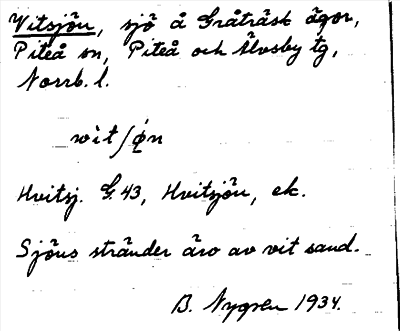 Vitsjön, sjö å Gråträsk ägor,
Piteå sn, Piteå och Älvsby tg,
Norrb. l.
wìtʃø̀n
Hvitsj. G. 43, Hvitsjön, ek.
Sjöns stränder äro av vit sand.
B. Nygren 1934.